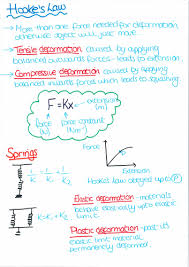 Hooke's Law
→ More than one force needed for deformation,
otherwise object will just move.
→ Tensile deformation caused by applying
balanced outwards forces - leads to extension
→ Compressive deformation caused by applying
balanced inwards forces which leads to squashing
F=Kx
extension
(m)
force
(N)
force constant
(Nm⁻¹)
Springs
Force
Extension
Hooke's law obeyed up to P
P
Elastic deformation - materials
behave elastically up to elastic
limit.
Plastic deformation - past its
elastic limit material
permanently deformed.